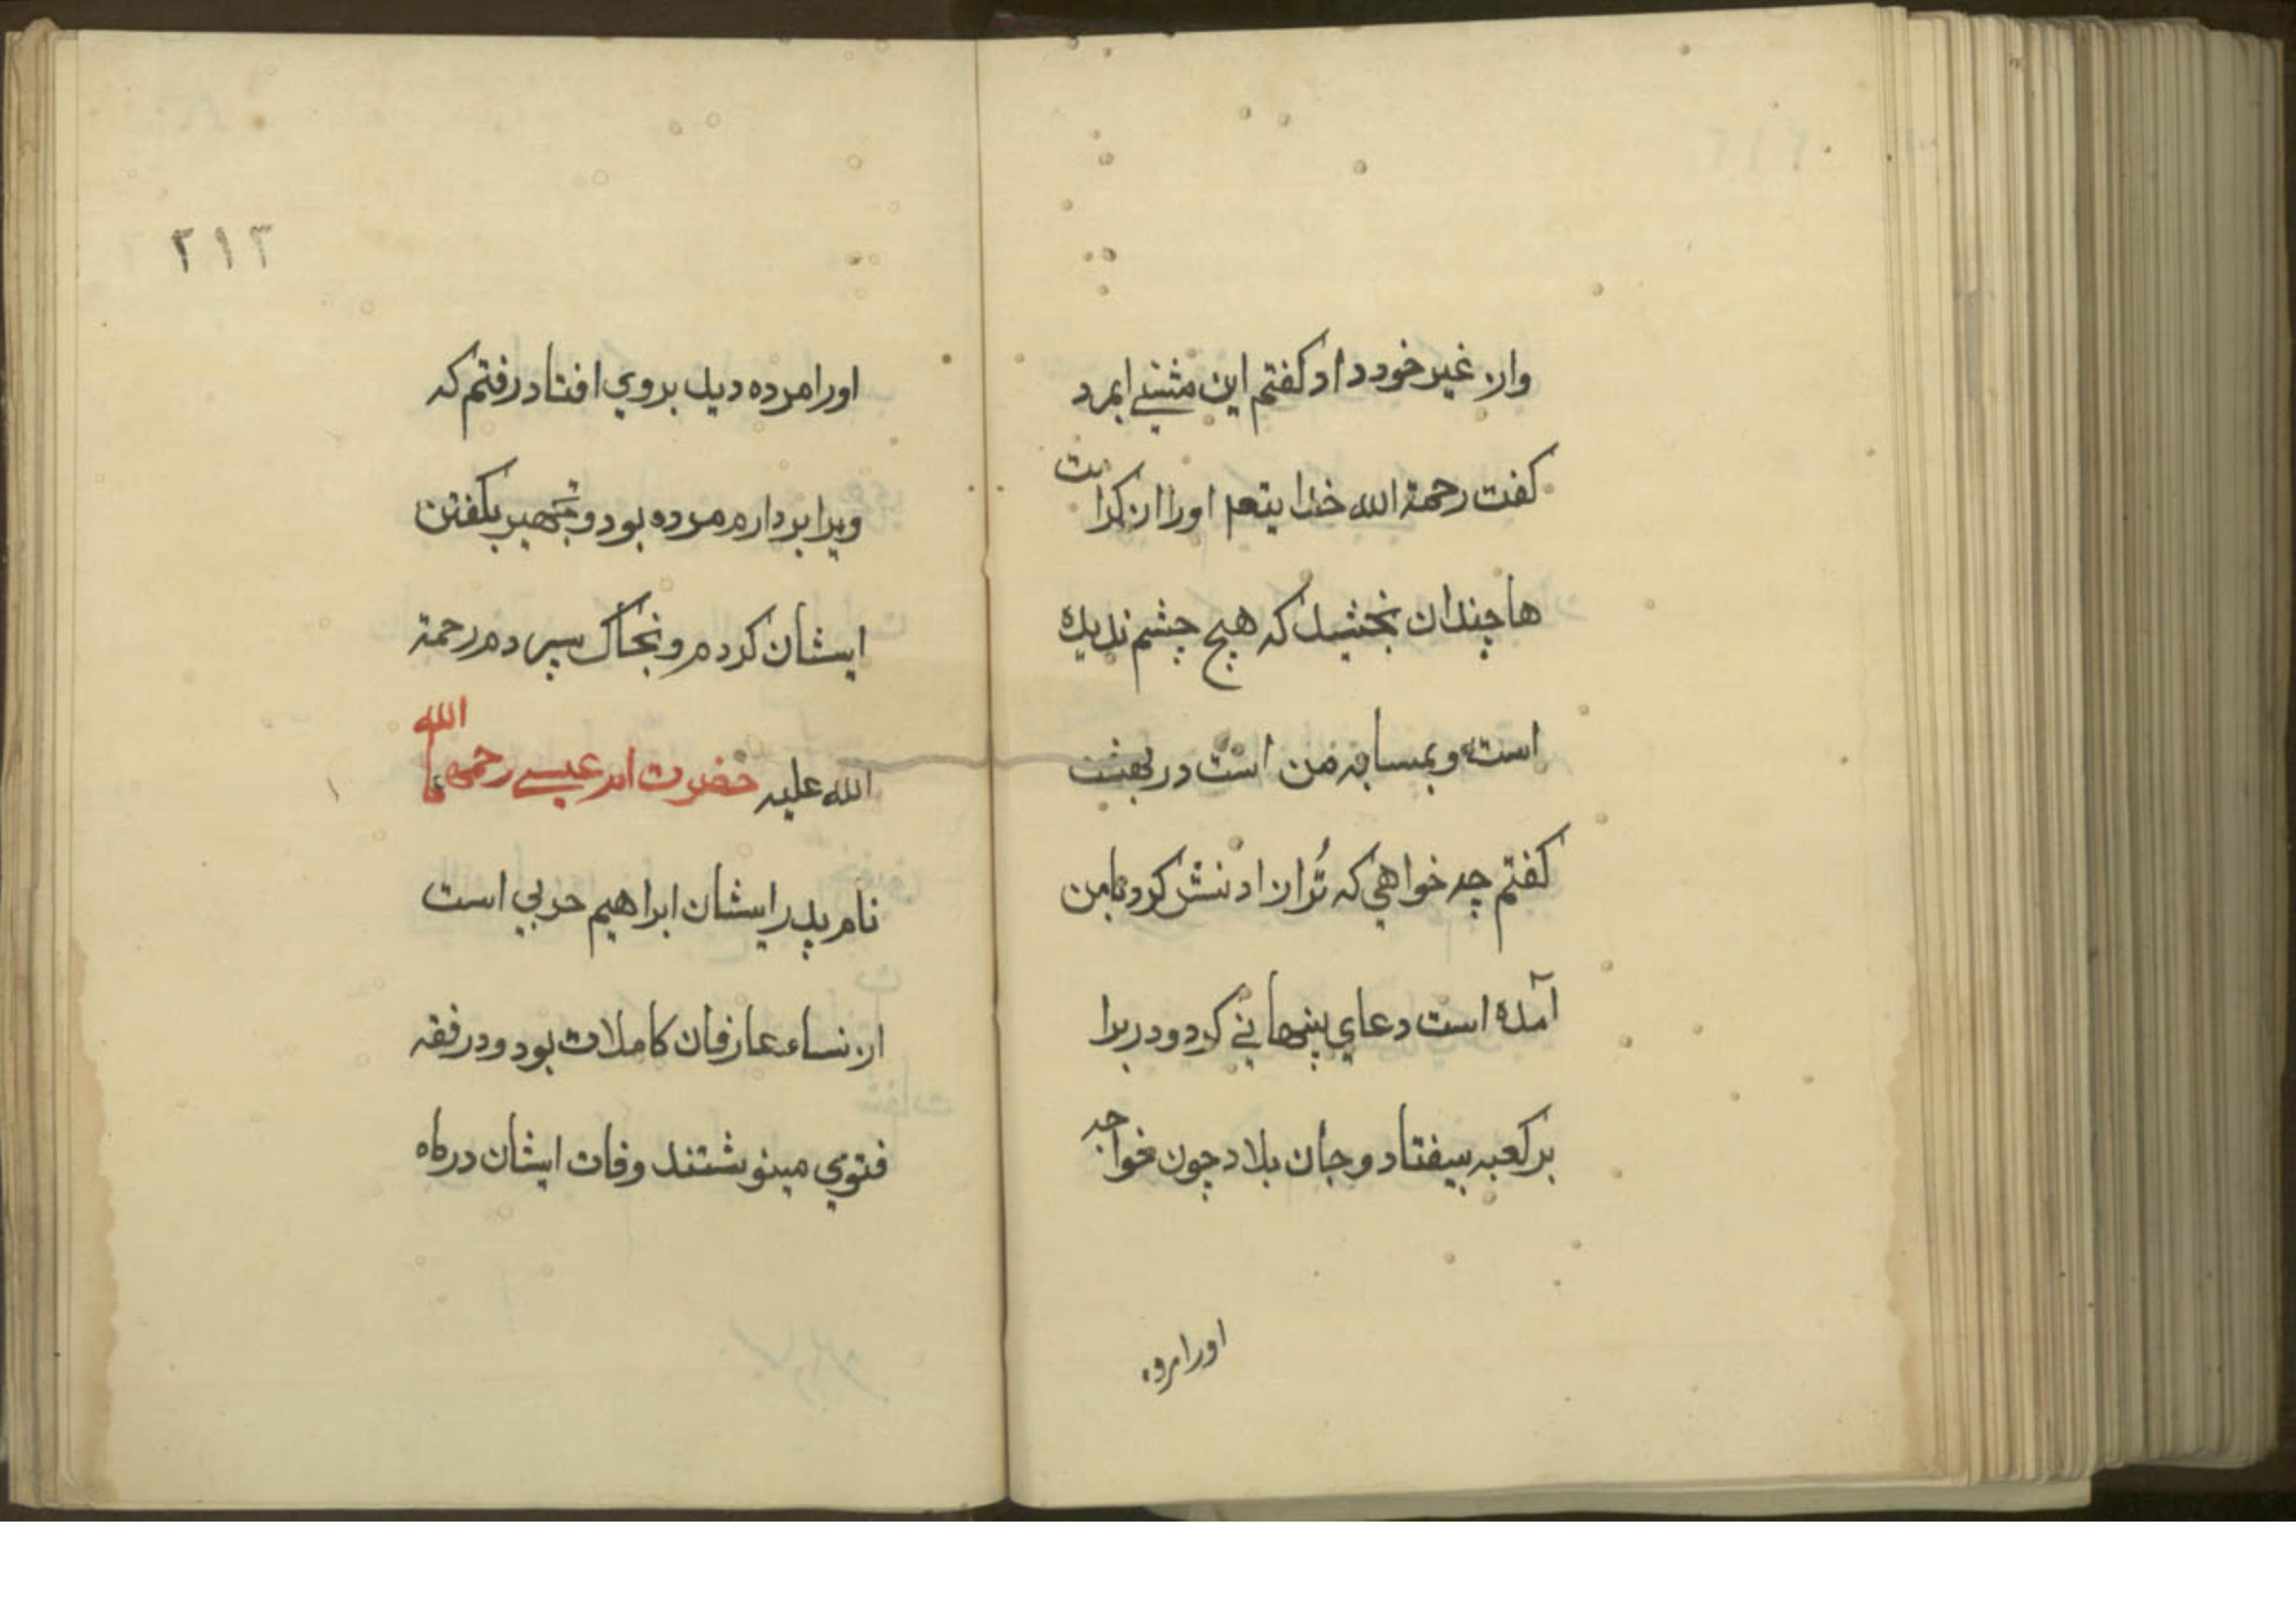 واز غیر خود داد گفتم این مثنیے ایمرد
گفت رحمة الله خدا یتعم اورا ان کرامت
ها چندان بخشید که هیچ چشم ندیده
است و بمسایه من است در بهشت
گفتم چه خواهی که ترا از ادنش کرد تا من
آمده است دعای پنهانے کرد و در برا
بر کعبه بیفتاد و جان بداد چون خواجه
اورا مرده
۲۱۳
اورا مرده دید بروی افتاد رفتم که
ویرا بردارم مرده بود و تجهیر بکفتن
ایشان کردم و بخاک سپردم رحمة
الله علیه حضرت ام عیسے رحمها الله
نام پدر ایشان ابراهیم حربی است
از نساء عارفان کاملات بود و در فقه
فتوی مینوشتند وفات ایشان در ماه